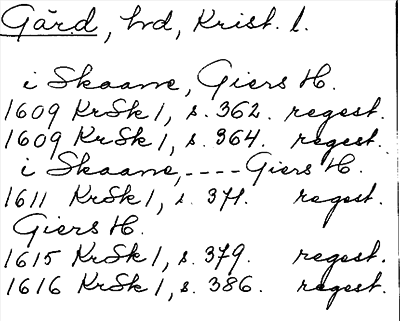 Gård, hvd, Krist. l.
i Skaane, Giers H.
1609 KrSk 1, s. 362. regest.
1609 KrSk 1, s. 364. regest.
i Skaane,---- Giers H.
1611 KrSk 1, s. 371. regest.
Giers H.
1615 KrSk 1, s. 379. regest.
1616 KrSk 1, s. 386. regest.